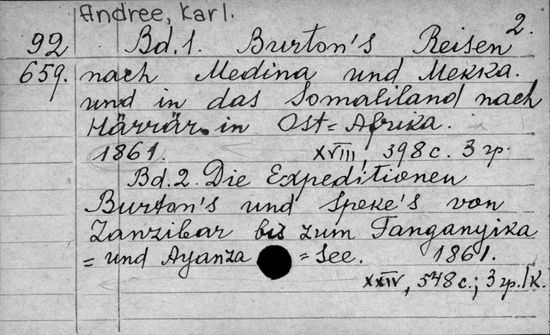 Andree, Karl.
2.
92 Bd.1. Burton's Reisen
659. nach Medina und Mekka.
und in das Somaliland nach
Härrär in Ost=Afrika.
1861. XVIII, 398 c. 3 гр.
Bd.2. Die Expeditionen
Burton's und Speke's von
Zanzibar bis zum Tanganyika
= und Ayanza =See. 1861.
XXIV, 548 c.; 3 гр./К.